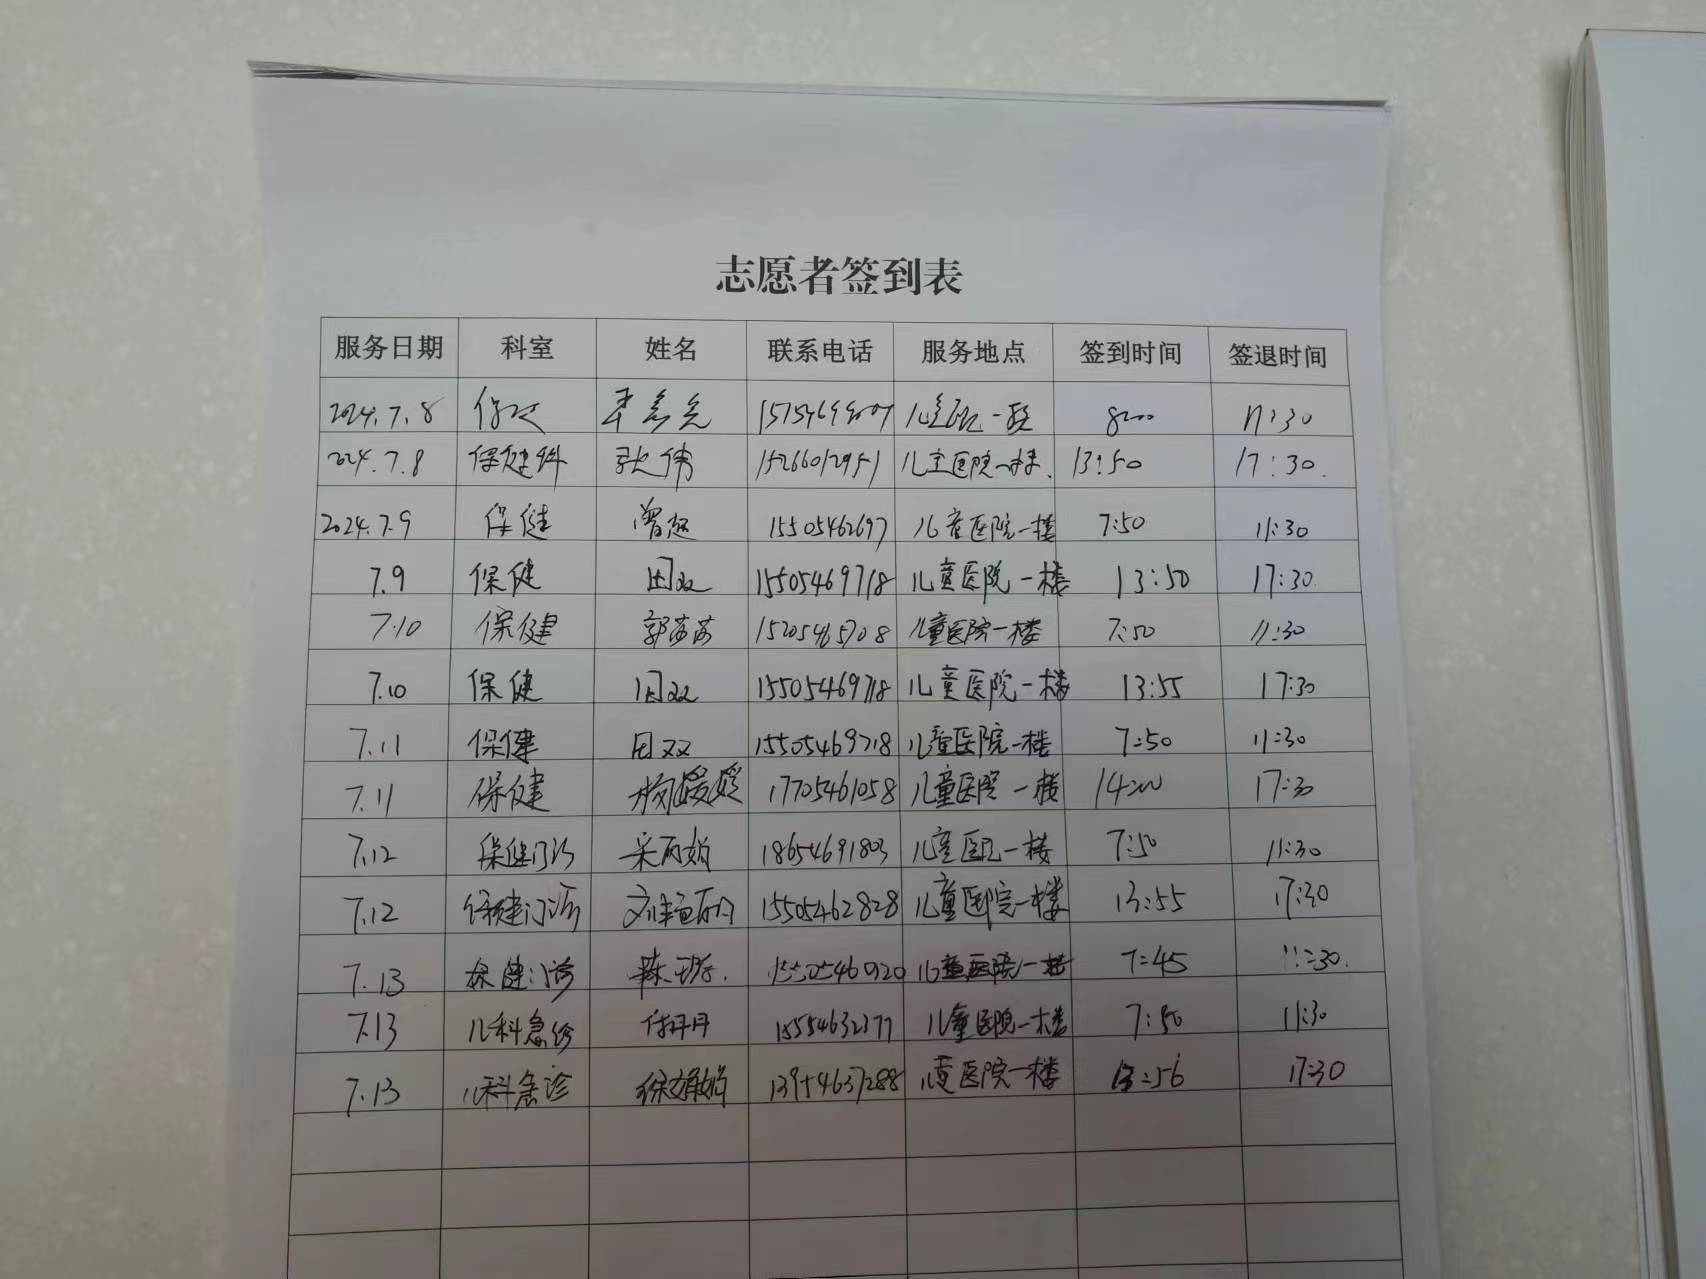 志愿者签到表
服务日期 科室 姓名 联系电话 服务地点 签到时间 签退时间
2024.7.8 8:00 11:30
2024.7.8 保健科 耿伟 15266012951 儿童医院一楼. 13:50 17:30.
2024.7.9 保健 曾超 15505462697 儿童医院一楼 7:50 11:30
7.9 保健 田双 15505469718 儿童医院一楼 13:50 17:30.
7.10 保健 郭苗苗 15205465708 儿童医院一楼 7:50 11:30
7.10 保健 田双 15505469718 儿童医院一楼 13:55 17:30
7.11 保健 田双 15505469718 儿童医院一楼 7:50 11:30
7.11 保健 杨媛媛 17705461058 儿童医院一楼 14:00 17:30
7.12 保健门诊 18654691803 儿童医院一楼 7:50 11:30
7.12 保健门诊 15505462828 儿童医院一楼 13:55 17:30
7.13 保健门诊 15505460920 儿童医院一楼 7:45 11:30.
7.13 儿科急诊 付丹丹 15554632377 儿童医院一楼 7:50 11:30
7.13 儿科急诊 徐娟娟 13954637288 儿童医院一楼 13:56 17:30